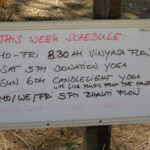 THIS WEEK SCHEDULE:
MO-FRI 8.30AM VINYASA FLOW
SAT 5PM DONATION YOGA
SUN 6PM CANDLELIGHT YOGA
LIVE MUSIC FROM THE
MO/WE/FRI 5PM BHAKTI FLOW